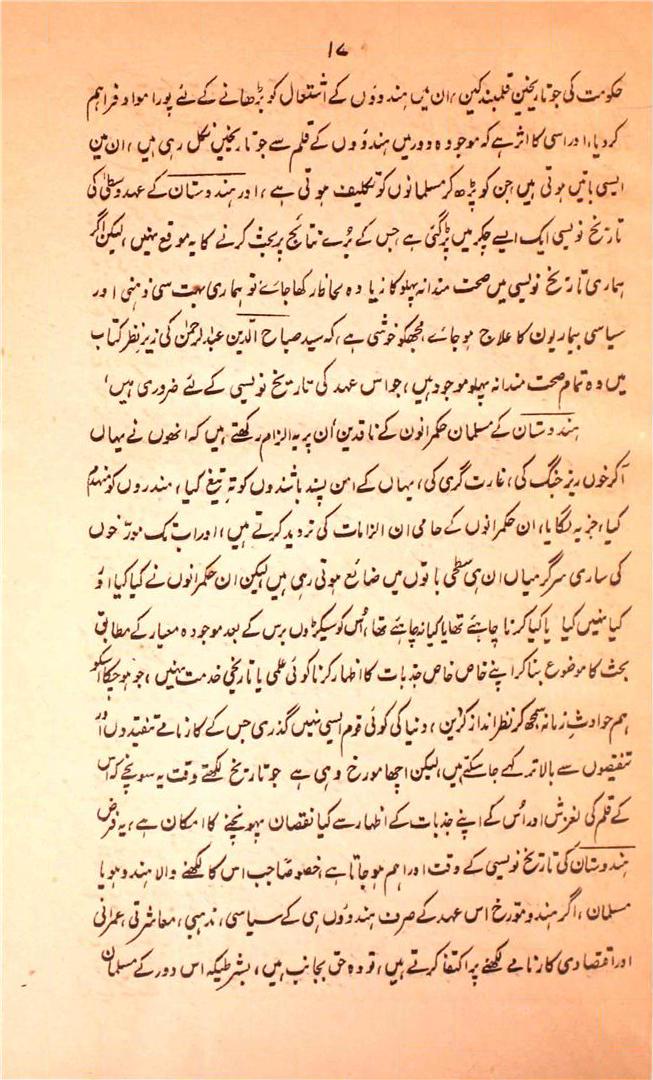 ۱۷
حکومت کی جو تاریخین قلمبند کین، ان میں ہندوؤں کے اشتعال کو بڑھانے کے لئے پورا مواد فراہم
کردیا، اور اسی کا اثر ہے کہ موجودہ دور میں ہندوؤں کے قلم سے جو تاریخیں نکل رہی ہیں، ان مین
ایسی باتیں ہوتی ہیں جن کو پڑھ کر مسلمانوں کو تکلیف ہوتی ہے، اور ہندوستان کے عہد وسطیٰ کی
تاریخ نویسی ایک ایسے چکر میں پڑگئی ہے جس کے بُرے نتائج پر بحث کرنے کا یہ موقع نہیں، لیکن اگر
ہماری تاریخ نویسی میں صحت مندانہ پہلو کا زیادہ لحاظ رکھا جائے تو ہماری بہت سی ذہنی اور
سیاسی بیماریون کا علاج ہوجائے، مجھکو خوشی ہے، کہ سید صباح الدین عبدالرحمٰن کی زیر نظر کتاب
میں وہ تمام صحت مندانہ پہلو موجود ہیں، جو اس عہد کی تاریخ نویسی کے لئے ضروری ہیں،
ہندوستان کے مسلمان حکمرانون کے ناقدین اُن پر یہ الزام رکھتے ہیں کہ انھوں نے یہاں
آکر خوں ریز جنگ کی، غارت گری کی، یہاں کے امن پسند باشندوں کو تہ تیغ کیا، مندروں کو منہدم
کیا، جزیہ لگایا، ان حکمرانوں کے حامی ان الزامات کی تردید کرتے ہیں، اور اب تک مورّخوں
کی ساری سرگرمیاں ان ہی سطحی باتوں میں ضائع ہوتی رہی ہیں لیکن ان حکمرانوں نے کیا کیا اور
کیا نہیں کیا یا کیا کرنا چاہئے تھا یا کیا نہ چاہئے تھا، اُس کو سیکڑوں برس کے بعد موجودہ معیار کے مطابق
بحث کا موضوع بنا کر اپنے خاص خاص جذبات کا اظہار کرنا کوئی علمی یا تاریخی خدمت نہیں، جو ہوچکا اسکو
ہم حوادثِ زمانہ سمجھ کر نظر انداز کرین، دنیا کی کوئی قوم ایسی نہیں گذری جس کے کارنامے تنقیدوں اور
تنقیصوں سے بالاتر کہے جاسکتے ہیں، لیکن اچھا مورخ وہی ہے جو تاریخ لکھتے وقت یہ سونچے کہ اس
کے قلم کی لغزش اور اُس کے اپنے جذبات کے اظہار سے کیا نقصان پہونچنے کا امکان ہے، یہ فرض
ہندوستان کی تاریخ نویسی کے وقت اور اہم ہوجاتا ہے خصوصًا جب اس کا لکھنے والا ہندو ہو یا
مسلمان، اگر ہندو مورّخ اس عہد کے صرف ہندوؤں ہی کے سیاسی، مذہبی، معاشرتی، عمرانی
اور اقتصادی کارنامے لکھنے پر اکتفا کرتے ہیں، تو وہ حق بجانب ہیں، بشرطیکہ اس دور کے مسلمان